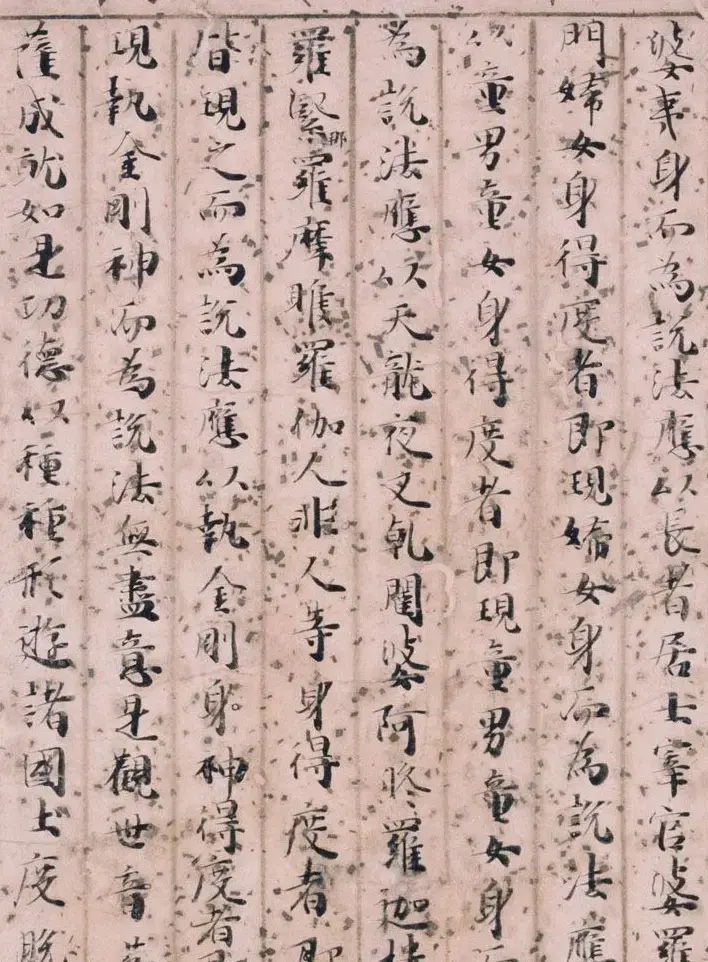 婆夷身而為說法應以長者居士宰官婆羅
門婦女身得度者即現婦女身而為說法應
以童男童女身得度者即現童男童女身而
為說法應以天龍夜叉乹闥婆阿脩羅迦樓
羅緊那羅摩睺羅伽人非人等身得度者即
皆現之而為說法應以執金剛身神得度者即
現執金剛神而為說法無盡意是觀世音菩
薩成就如是功德以種種形遊諸國土度脫